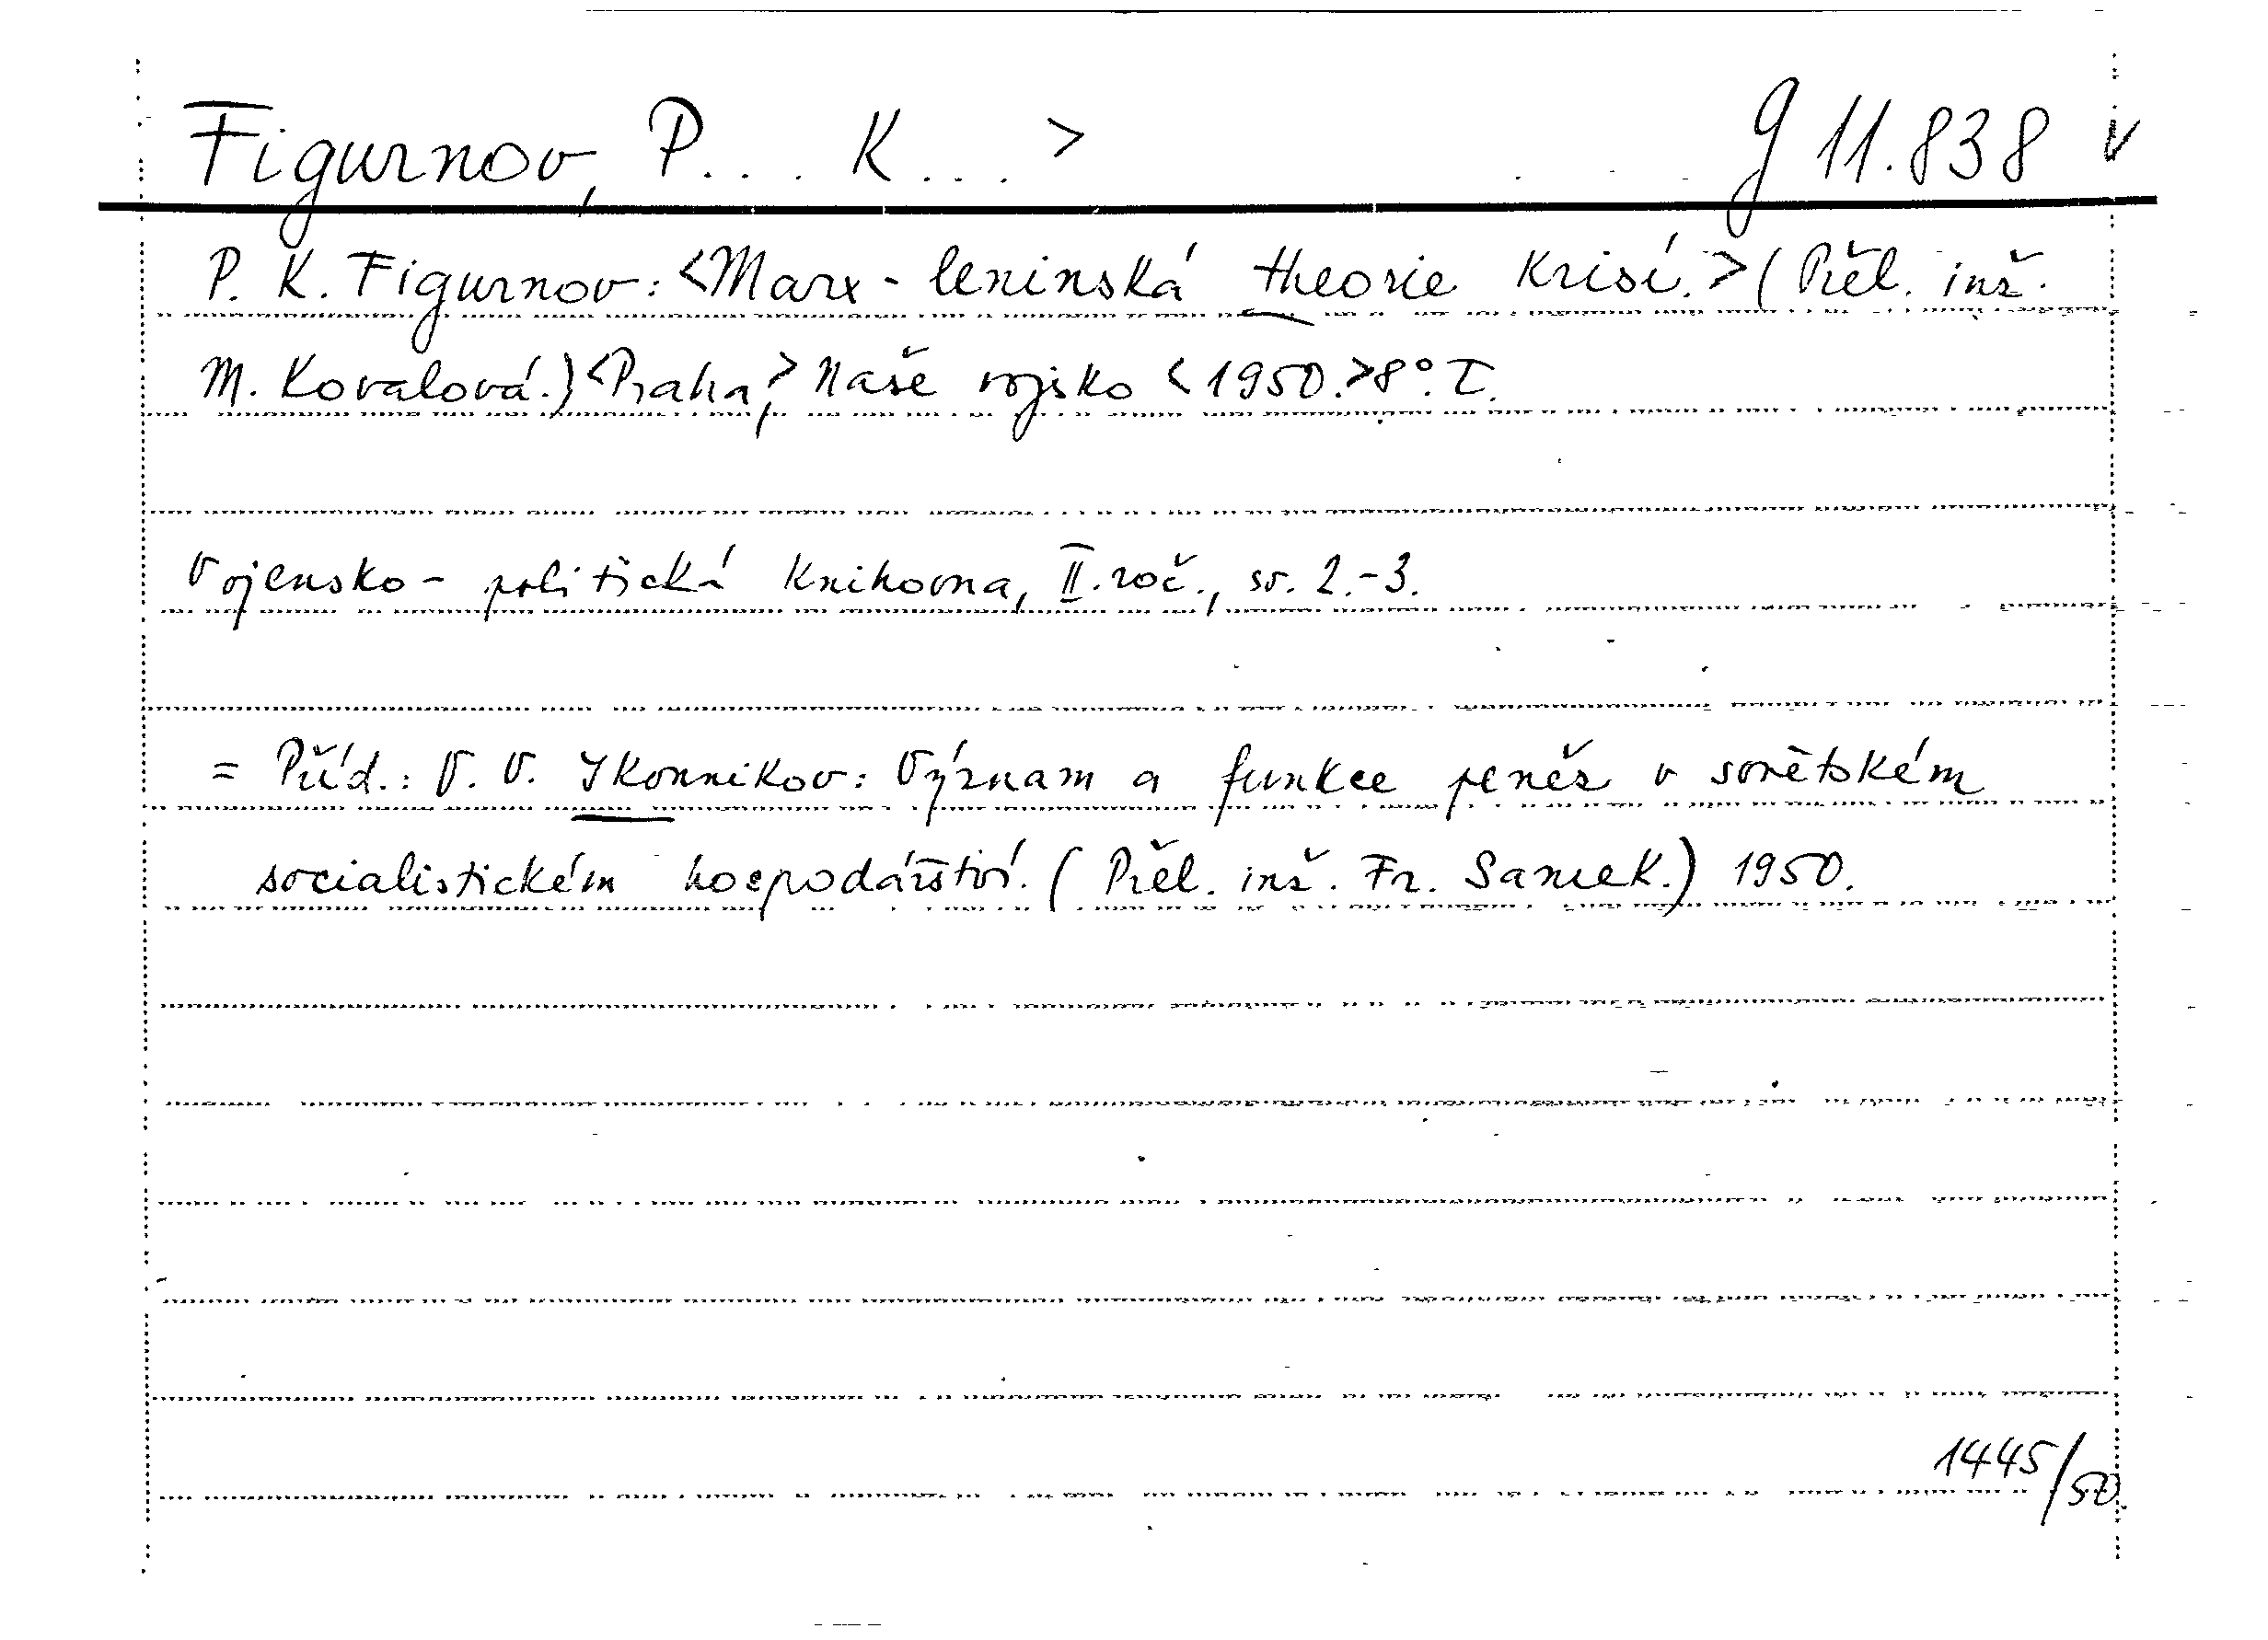 Figurnov, P... K... > g 11.838 v
P. K. Figurnov: <Marx-leninská theorie krisí.> (Přel. inž.
M. Kovalová.) <Praha,> Naše vojsko <1950.> 8°. T.
Vojensko-politická knihovna, II. roč., sv. 2.-3.
= Příd.: V. V. Ikonnikov: Význam a funkce peněz v sovětském
socialistickém hospodářství. (Přel. inž. Fr. Samek.) 1950.
1445/50.